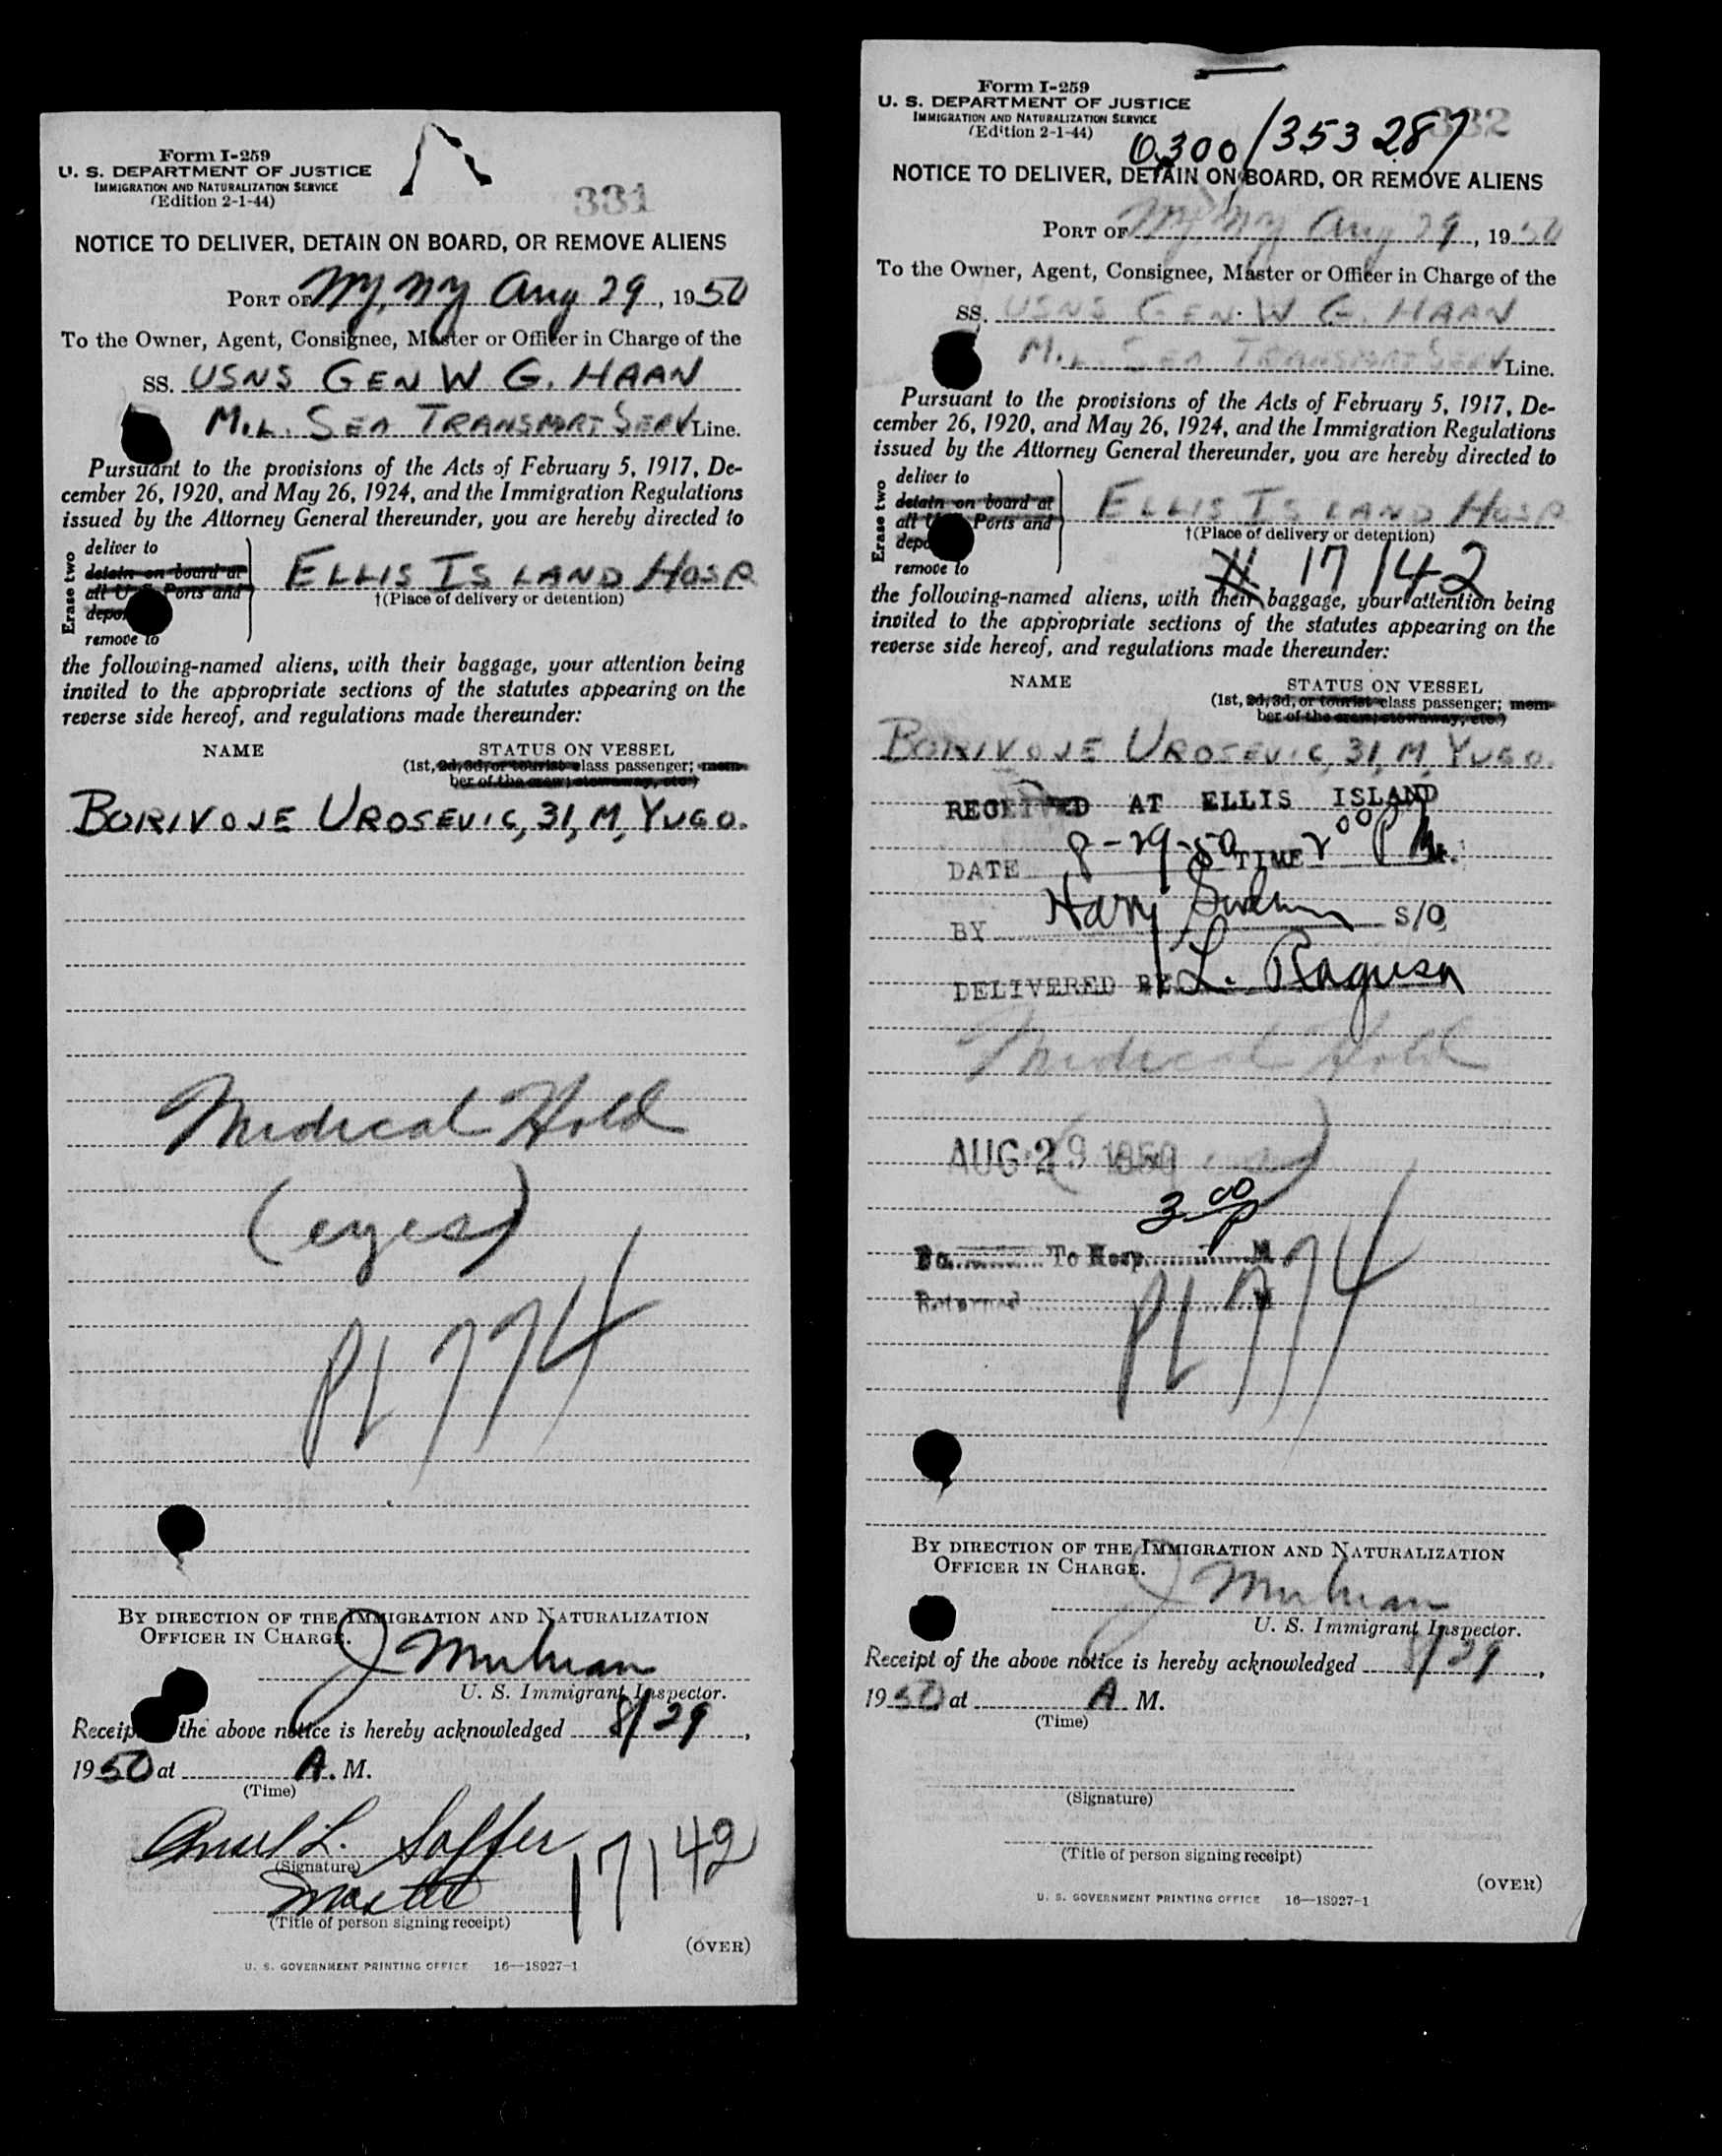 Form I-259
U. S. DEPARTMENT OF JUSTICE
IMMIGRATION AND NATURALIZATION SERVICE
(Edition 2-1-44)
331
NOTICE TO DELIVER, DETAIN ON BOARD, OR REMOVE ALIENS
PORT OF NY, NY Aug 29, 1950
To the Owner, Agent, Consignee, Master or Officer in Charge of the
SS. USNS GEN W G. HAAN
MIL. SEA TRANSPORT SERV Line.
Pursuant to the provisions of the Acts of February 5, 1917, De-
cember 26, 1920, and May 26, 1924, and the Immigration Regulations
issued by the Attorney General thereunder, you are hereby directed to
Erase two
deliver to
detain on board at
all U. S. Ports and
remove to
ELLIS ISLAND HOSP.
†(Place of delivery or detention)
the following-named aliens, with their baggage, your attention being
invited to the appropriate sections of the statutes appearing on the
reverse side hereof, and regulations made thereunder:
NAME STATUS ON VESSEL
(1st, 2d, 3d, or tourist class passenger; mem-
ber of the crew; stowaway, etc.)
BORIVOJE UROSEVIC, 31, M, YUGO.
Medical Hold
(eyes)
PL 774
BY DIRECTION OF THE IMMIGRATION AND NATURALIZATION
OFFICER IN CHARGE.
U. S. Immigrant Inspector.
Receipt the above notice is hereby acknowledged 8/29,
1950 at A. M.
(Time)
L. Saffer
(Signature)
Master
(Title of person signing receipt)
17142
(OVER)
U. S. GOVERNMENT PRINTING OFFICE 16—18927-1
Form I-259
U. S. DEPARTMENT OF JUSTICE
IMMIGRATION AND NATURALIZATION SERVICE
(Edition 2-1-44)
332
0300/353287
NOTICE TO DELIVER, DETAIN ON BOARD, OR REMOVE ALIENS
PORT OF NY, NY Aug 29, 1950
To the Owner, Agent, Consignee, Master or Officer in Charge of the
SS. USNS GEN. W G. HAAN
MIL. SEA TRANSPORT SERV Line.
Pursuant to the provisions of the Acts of February 5, 1917, De-
cember 26, 1920, and May 26, 1924, and the Immigration Regulations
issued by the Attorney General thereunder, you are hereby directed to
Erase two
deliver to
detain on board at
all Ports and
remove to
ELLIS ISLAND HOSP
†(Place of delivery or detention)
17142
the following-named aliens, with their baggage, your attention being
invited to the appropriate sections of the statutes appearing on the
reverse side hereof, and regulations made thereunder:
NAME STATUS ON VESSEL
(1st, 2d, 3d, or tourist class passenger; mem-
ber of the crew; stowaway, etc.)
BORIVOJE UROSEVIC, 31, M, YUGO.
RECEIVED AT ELLIS ISLAND
DATE 8-29-50 TIME 2 00 P M.
BY Harry S/O
DELIVERED BY L. Ragusa
Medical Hold
AUG 29 1950
3 00 P
To Hosp. M
Returned M
PL 774
BY DIRECTION OF THE IMMIGRATION AND NATURALIZATION
OFFICER IN CHARGE.
U. S. Immigrant Inspector.
Receipt of the above notice is hereby acknowledged 8/29,
1950 at A. M.
(Time)
(Signature)
(Title of person signing receipt)
(OVER)
U. S. GOVERNMENT PRINTING OFFICE 16—18927-1